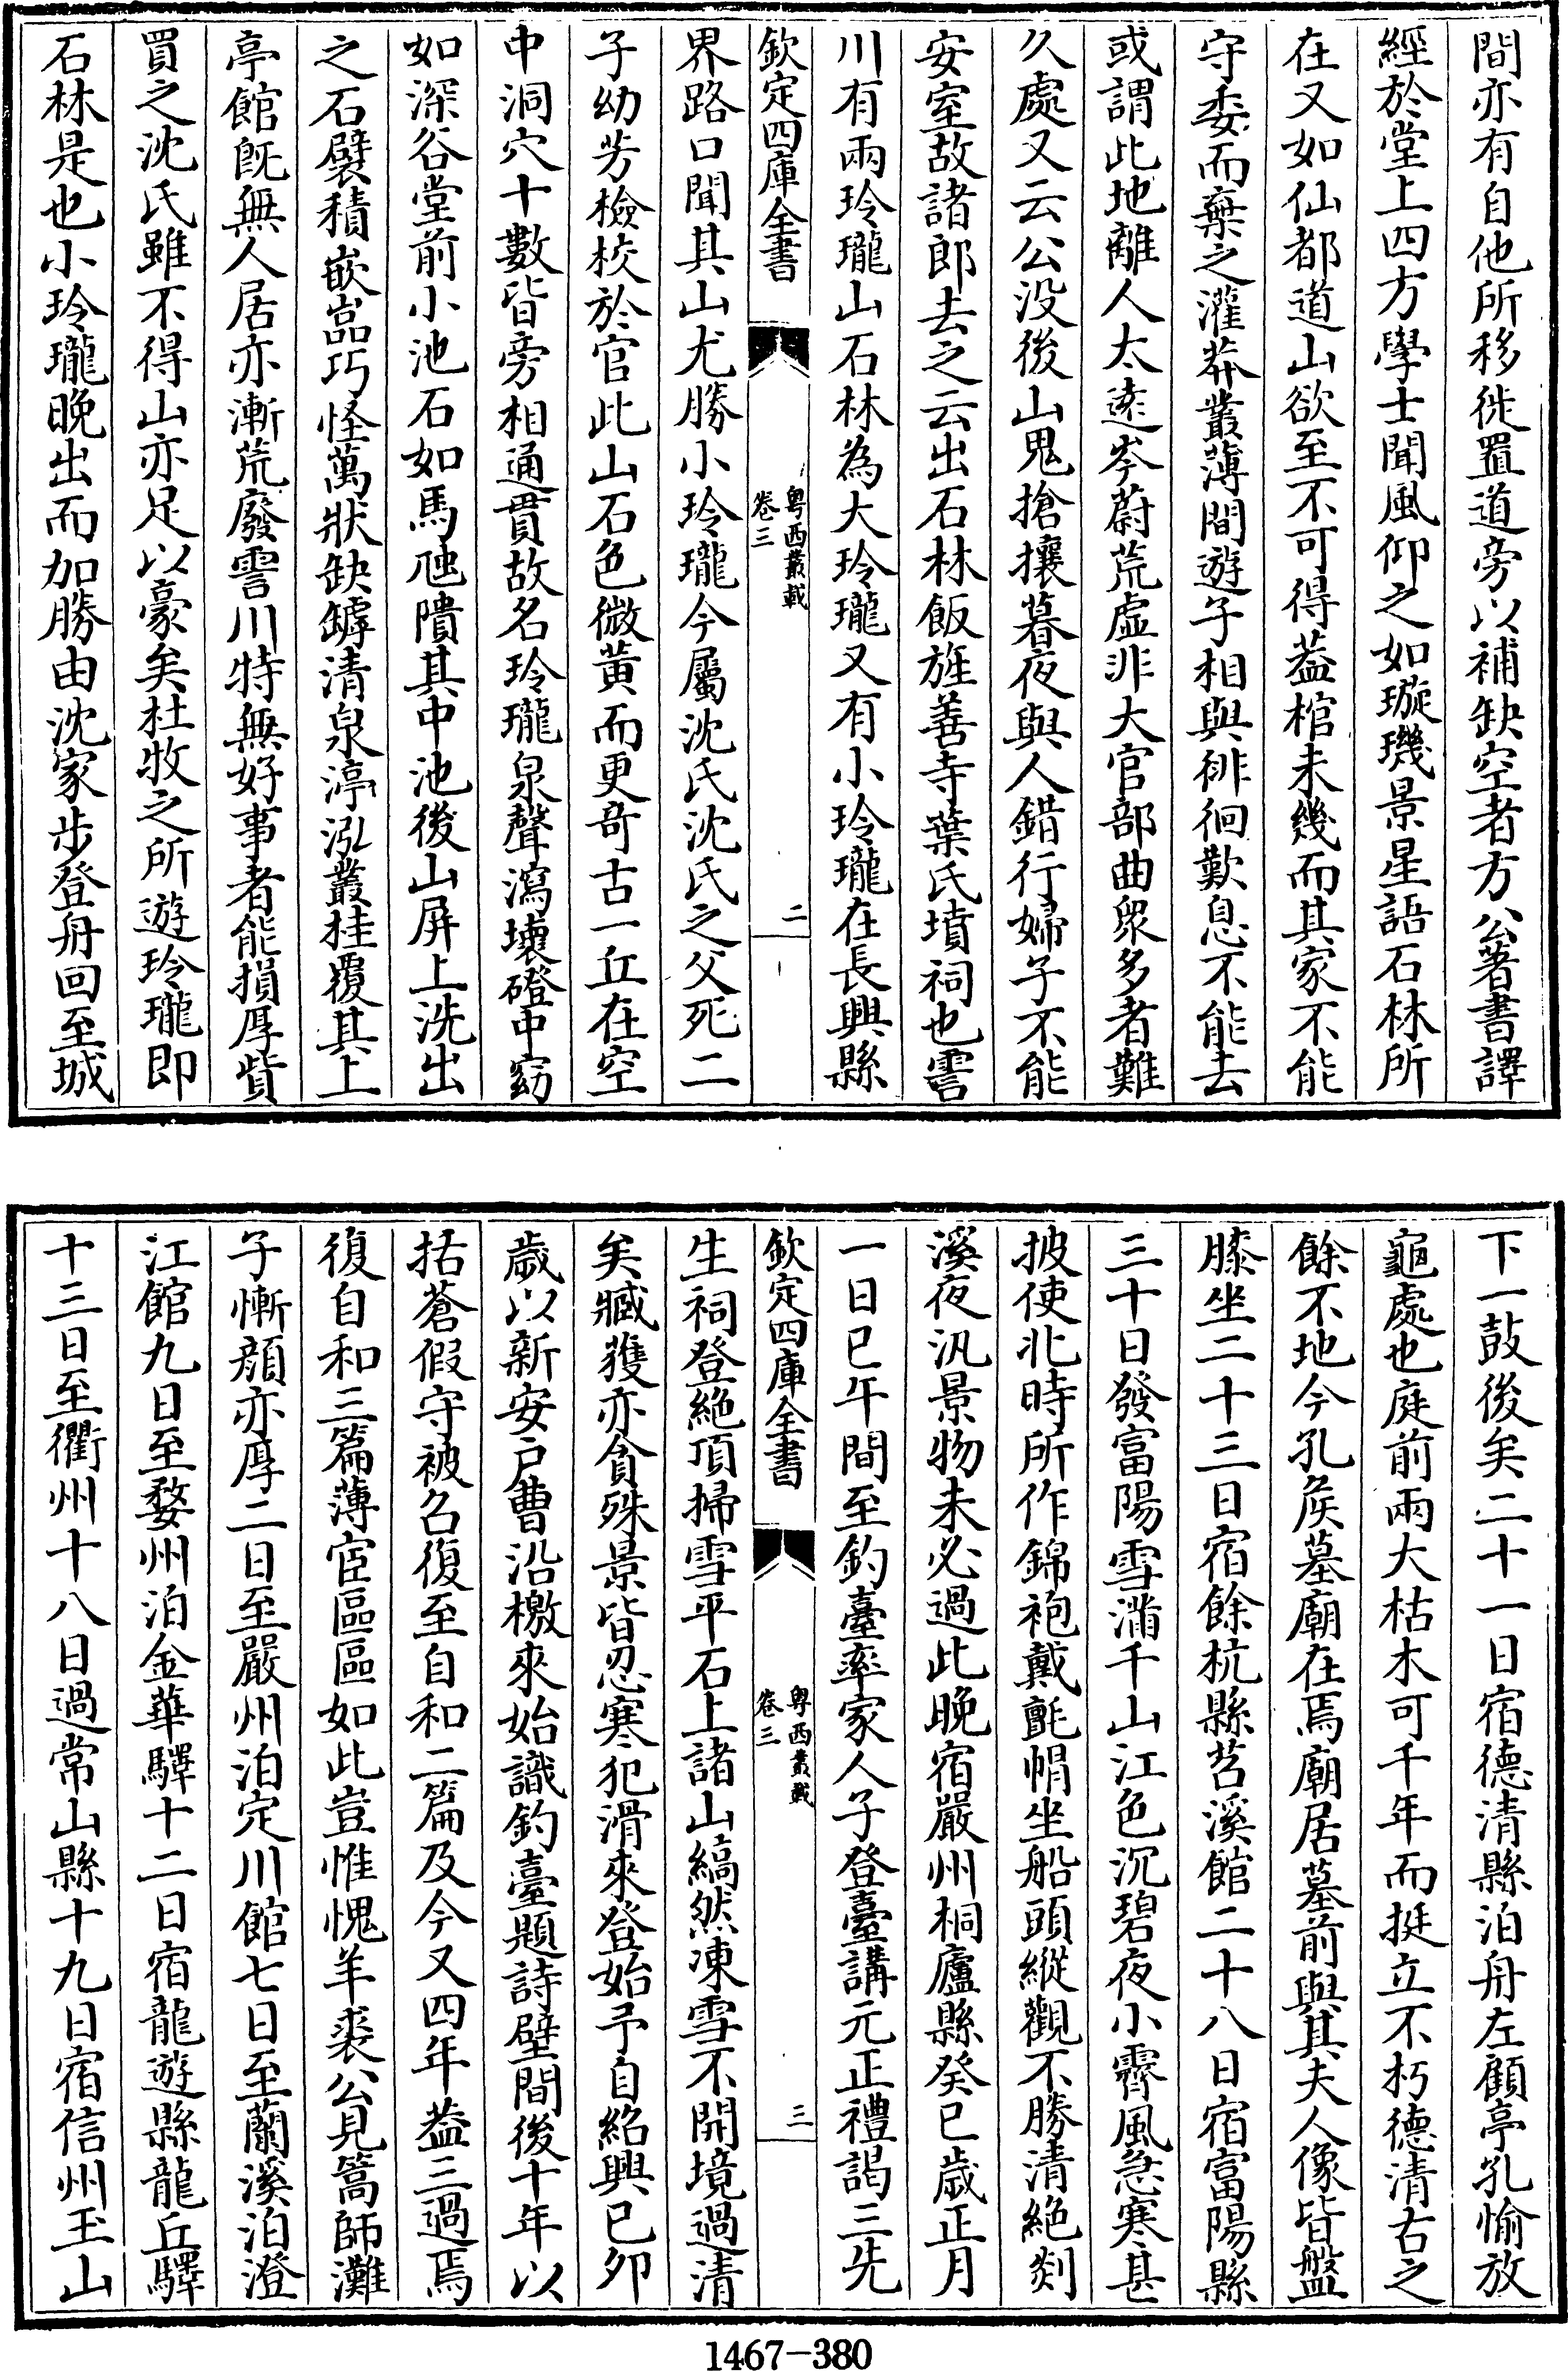 間亦有自他所移徙置道旁以補缺空者方公著書譯
經於堂上四方學士聞風仰之如璇璣景星語石林所
在又如仙都道山欲至不可得葢棺未幾而其家不能
守委而棄之灌莽叢薄間遊子相與徘徊歎息不能去
或謂此地離人太逺岑蔚荒虛非大官部曲衆多者難
久處又云公没後山鬼搶攘暮夜與人錯行婦子不能
安室故諸郎去之云出石林飯旌善寺葉氏墳祠也霅
川有兩玲瓏山石林為大玲瓏又有小玲瓏在長興縣
欽定四庫全書
粵西叢載
卷三
二
界路口聞其山尤勝小玲瓏今屬沈氏沈氏之父死二
子幼芳檢校於官此山石色微黄而更竒古一丘在空
中洞穴十數皆旁相通貫故名玲瓏泉聲瀉壞磴中窈
如深谷堂前小池石如馬虺隤其中池後山屏上洗出
之石襞積嵌嵓巧怪萬狀缺罅清泉渟泓叢桂覆其上
亭館旣無人居亦漸荒廢霅川特無好事者能損厚貲
買之沈氏雖不得山亦足以豪矣杜牧之所遊玲瓏即
石林是也小玲瓏晚出而加勝由沈家步登舟回至城
下一鼓後矣二十一日宿德清縣泊舟左顧亭孔愉放
龜處也庭前兩大枯木可千年而挺立不朽德清右之
餘不地今孔矦墓廟在焉廟居墓前與其夫人像皆盤
膝坐二十三日宿餘杭縣苕溪館二十八日宿富陽縣
三十日發富陽雪滿千山江色沉碧夜小霽風急寒甚
披使北時所作錦袍戴氈帽坐船頭縱觀不勝清絶剡
溪夜汎景物未必過此晚宿嚴州桐廬縣癸巳歲正月
一日巳午間至釣臺率家人子登臺講元正禮謁三先
欽定四庫全書
粵西叢載
卷三
三
生祠登絶頂掃雪平石上諸山縞然凍雪不開境過清
矣臧獲亦貪殊景皆忍寒犯滑來登始予自紹興己夘
歲以新安戸曹沿檄來始識釣臺題詩壁間後十年以
括蒼假守被召復至自和二篇及今又四年葢三過焉
復自和三篇薄宦區區如此豈惟愧羊裘公見篙師灘
子慚顔亦厚二日至嚴州泊定川館七日至蘭溪泊澄
江館九日至婺州泊金華驛十二日宿龍遊縣龍丘驛
十三日至衢州十八日過常山縣十九日宿信州玉山
1467-380